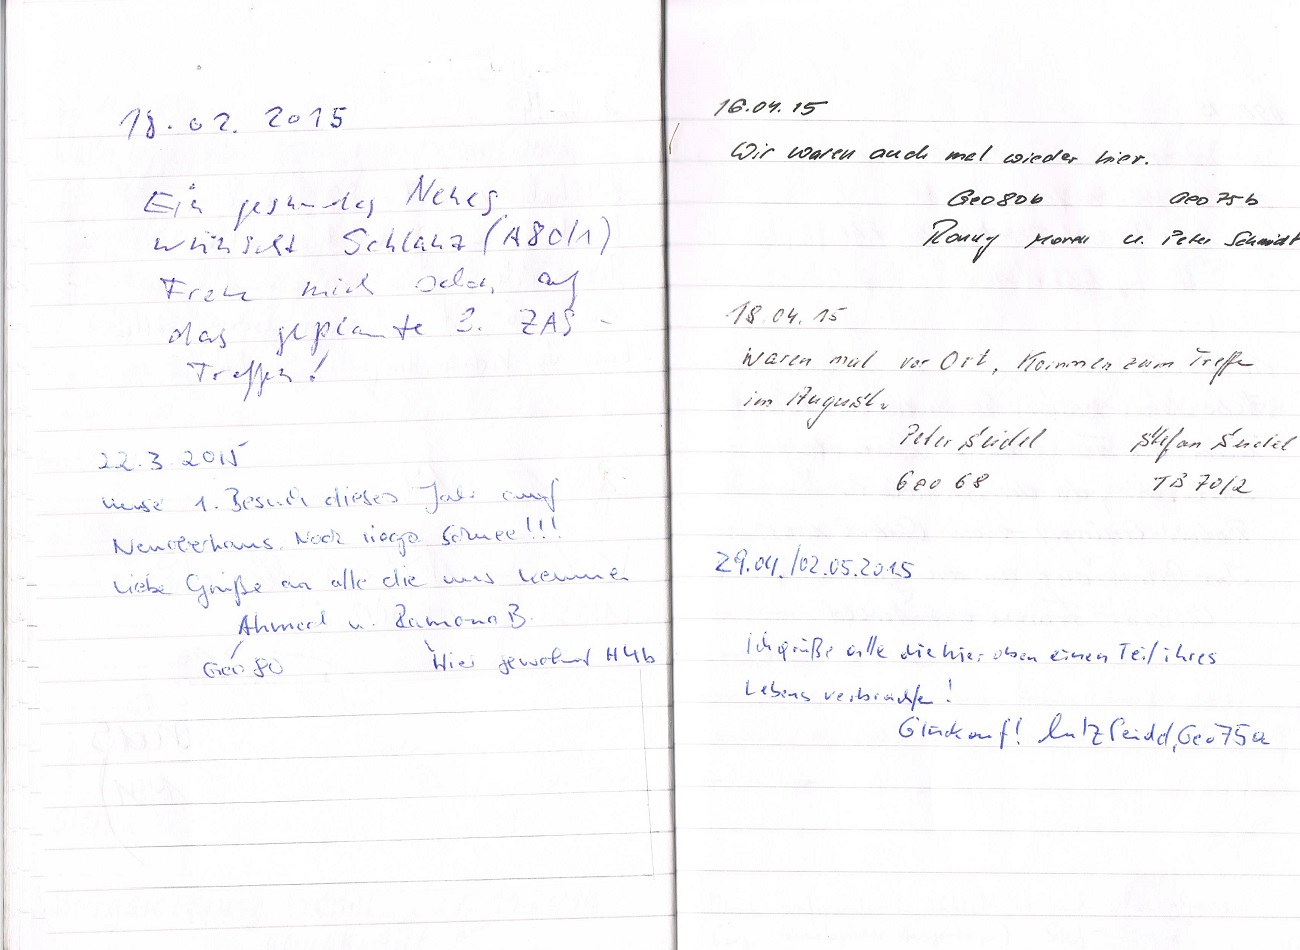 18.02.2015
Ein gesundes Neues
wünscht Schlanz (A80/1)
Freu mich schon auf
das geplante 3. ZAS -
Treffen!
22.3.2015
unser 1. Besuch dieses Jahr auf
Neunerhaus. Noch riege Schnee!!!
Liebe Grüße an alle die uns kennen
Ahmed u. Ramona B.
Geo 80 Hier gewohnt H4b
16.04.15
Wir waren auch mal wieder hier.
Geo80b Geo75b
Ronny u. Peter Schmidt
18.04.15
Waren mal vor Ort, Kommen zum Treffen
im August.
Peter Seidel Stefan Seidel
Geo 68 TB 70/2
29.04./02.05.2015
Ich grüße alle die hier oben einen Teil ihres
Lebens verbrachten!
Glückauf! Lutz Seidel, Geo75a